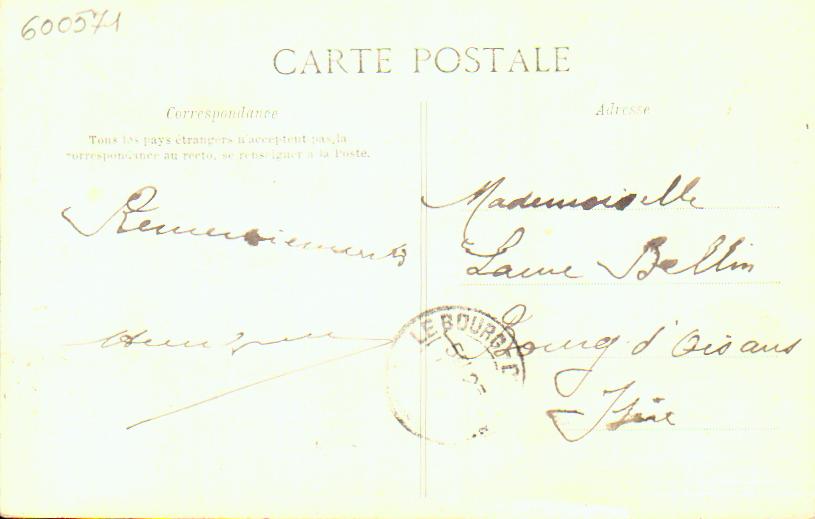 600571
CARTE POSTALE
Correspondance
Tous les pays étrangers n'acceptent pas la
correspondance au recto, se renseigner à la Poste.
Remerciements
Adresse
Mademoiselle
Laure Bellin
Bourg d'Oisans
Isère
LE BOURG-D